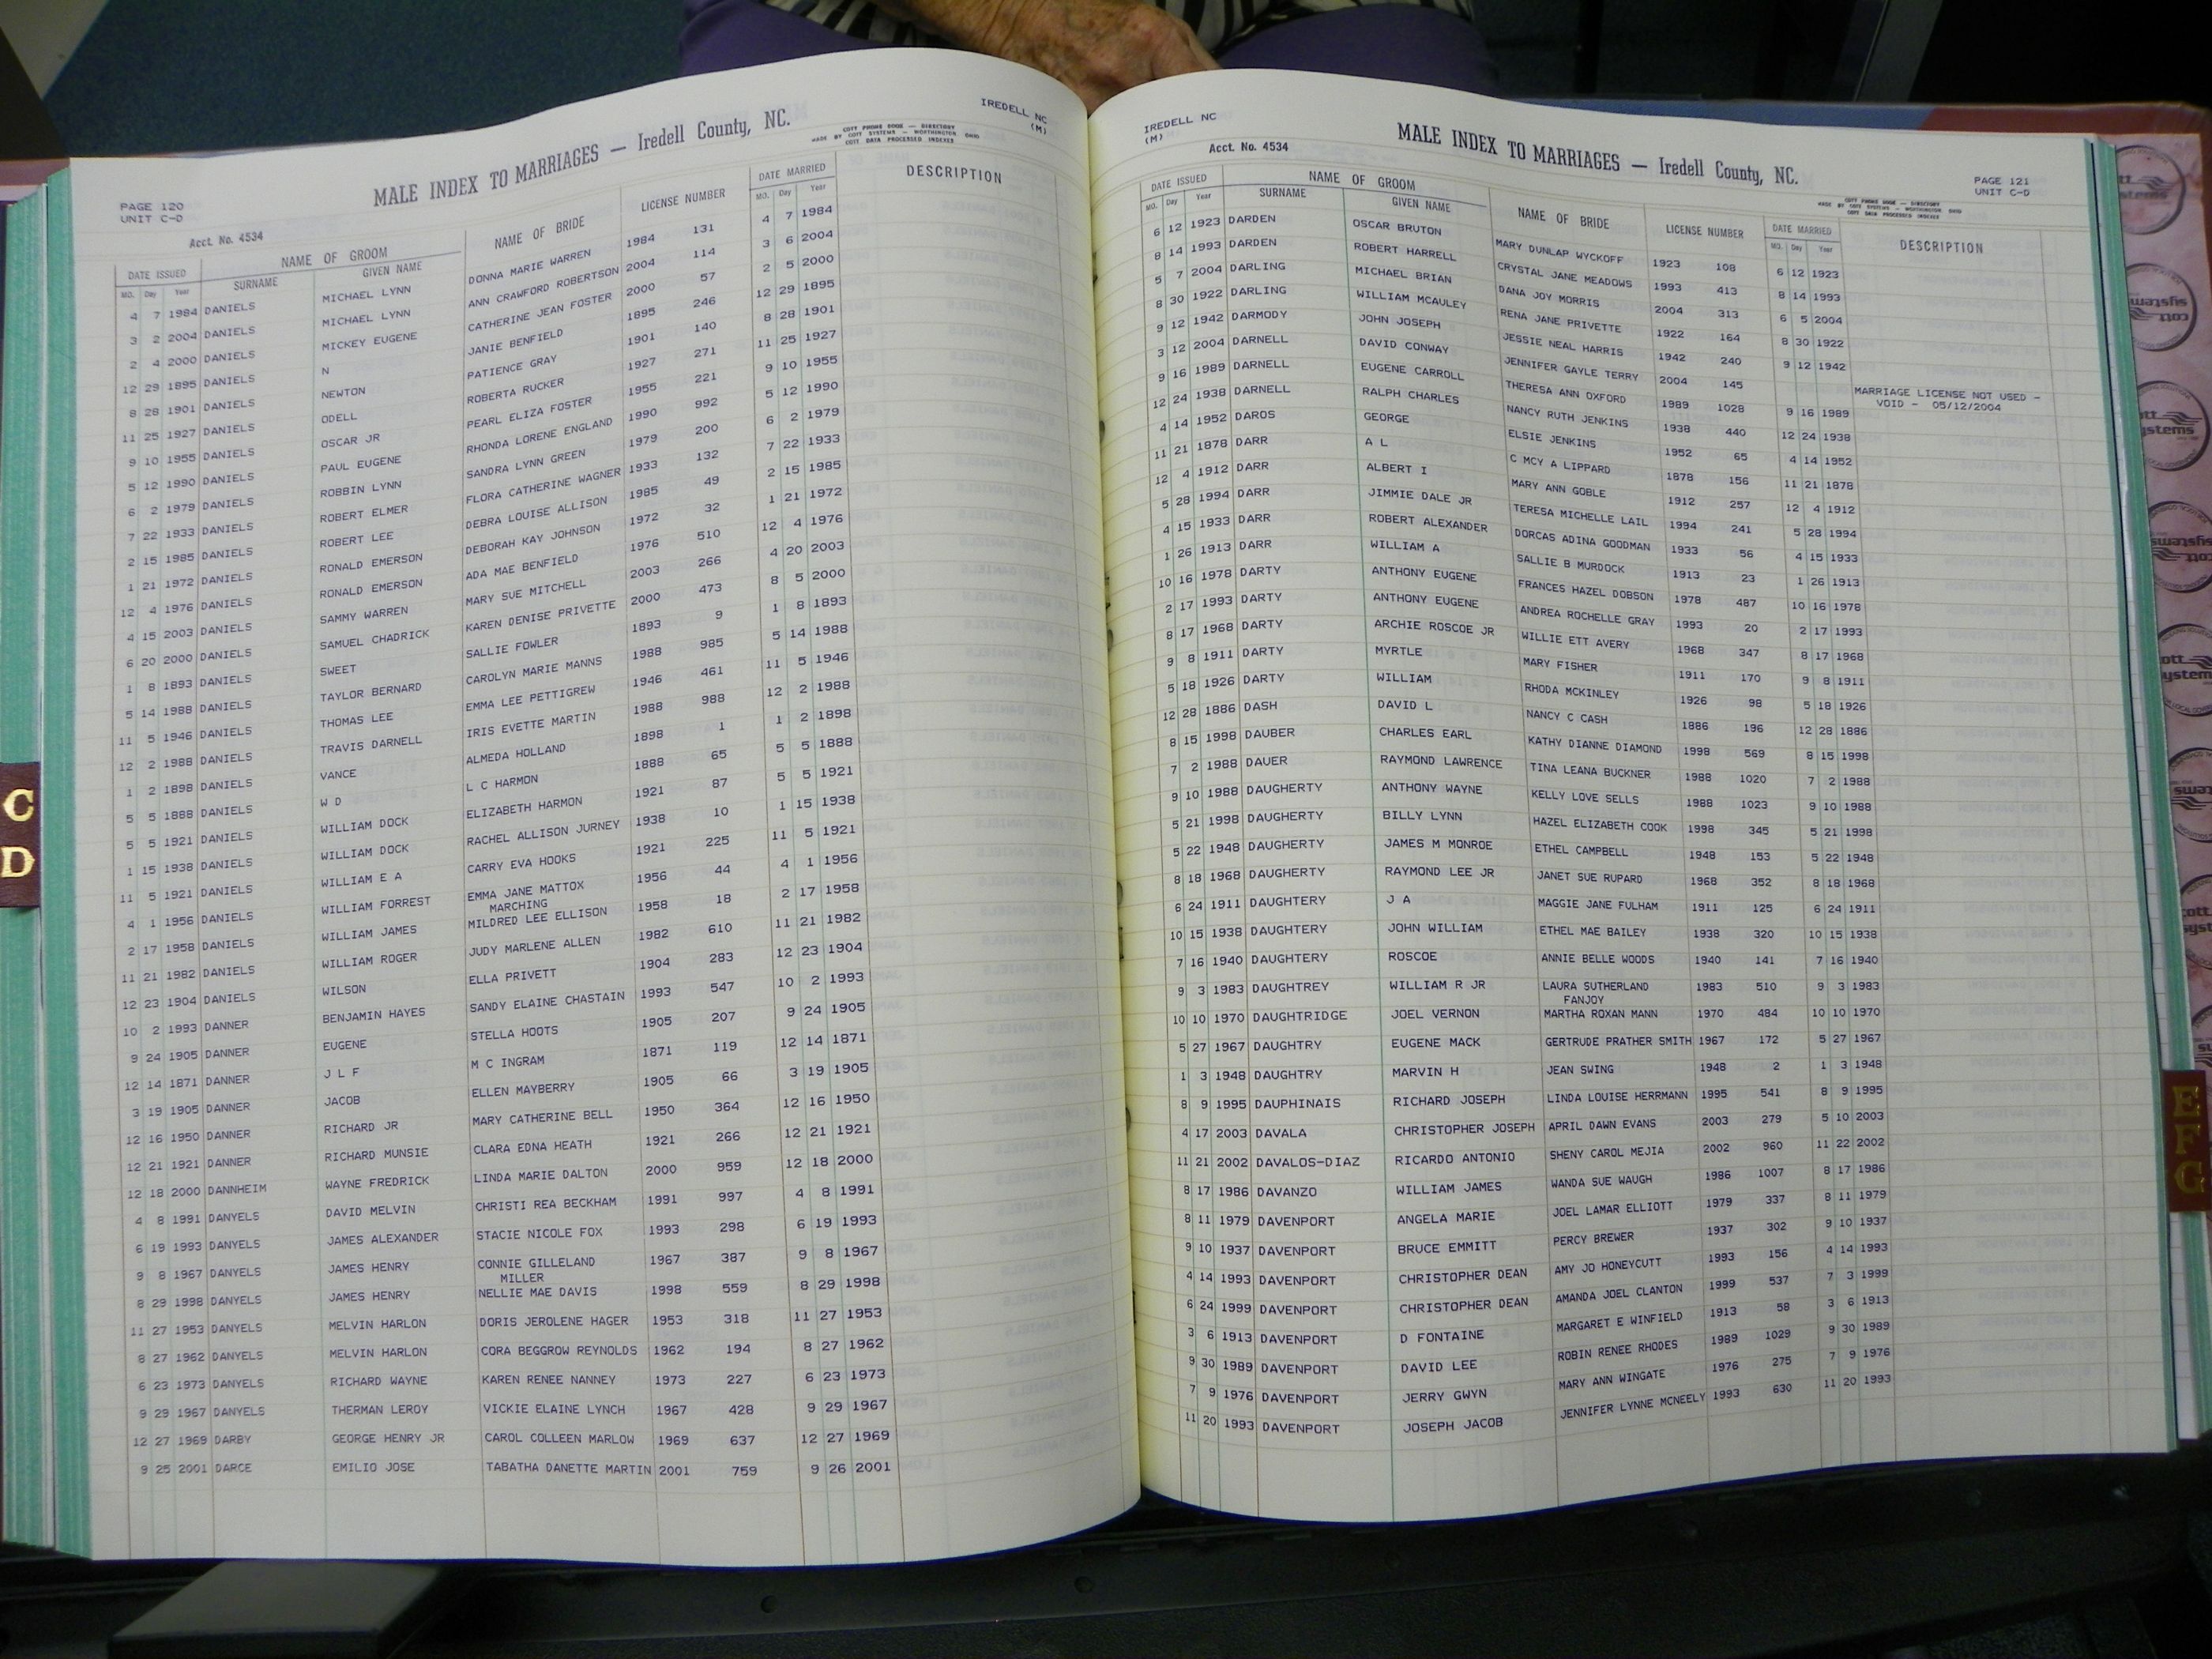 IREDELL NC
(M)
MALE INDEX TO MARRIAGES — Iredell County, NC.
COTT PHONE BOOK — DIRECTORY
MADE BY COTT SYSTEMS — WORTHINGTON OHIO
COTT DATA PROCESSED INDEXES
PAGE 120
UNIT C-D
Acct. No. 4534
DATE ISSUED NAME OF GROOM NAME OF BRIDE LICENSE NUMBER DATE MARRIED DESCRIPTION
MO. Day Year SURNAME GIVEN NAME MO. Day Year
4 7 1984 DANIELS MICHAEL LYNN DONNA MARIE WARREN 1984 131 4 7 1984
3 2 2004 DANIELS MICHAEL LYNN ANN CRAWFORD ROBERTSON 2004 114 3 6 2004
2 4 2000 DANIELS MICKEY EUGENE CATHERINE JEAN FOSTER 2000 57 2 5 2000
12 29 1895 DANIELS N JANIE BENFIELD 1895 246 12 29 1895
8 28 1901 DANIELS NEWTON PATIENCE GRAY 1901 140 8 28 1901
11 25 1927 DANIELS ODELL ROBERTA RUCKER 1927 271 11 25 1927
9 10 1955 DANIELS OSCAR JR PEARL ELIZA FOSTER 1955 221 9 10 1955
5 12 1990 DANIELS PAUL EUGENE RHONDA LORENE ENGLAND 1990 992 5 12 1990
6 2 1979 DANIELS ROBBIN LYNN SANDRA LYNN GREEN 1979 200 6 2 1979
7 22 1933 DANIELS ROBERT ELMER FLORA CATHERINE WAGNER 1933 132 7 22 1933
2 15 1985 DANIELS ROBERT LEE DEBRA LOUISE ALLISON 1985 49 2 15 1985
1 21 1972 DANIELS RONALD EMERSON DEBORAH KAY JOHNSON 1972 32 1 21 1972
12 4 1976 DANIELS RONALD EMERSON ADA MAE BENFIELD 1976 510 12 4 1976
4 15 2003 DANIELS SAMMY WARREN MARY SUE MITCHELL 2003 266 4 20 2003
6 20 2000 DANIELS SAMUEL CHADRICK KAREN DENISE PRIVETTE 2000 473 8 5 2000
1 8 1893 DANIELS SWEET SALLIE FOWLER 1893 9 1 8 1893
5 14 1988 DANIELS TAYLOR BERNARD CAROLYN MARIE MANNS 1988 985 5 14 1988
11 5 1946 DANIELS THOMAS LEE EMMA LEE PETTIGREW 1946 461 11 5 1946
12 2 1988 DANIELS TRAVIS DARNELL IRIS EVETTE MARTIN 1988 988 12 2 1988
1 2 1898 DANIELS VANCE ALMEDA HOLLAND 1898 1 1 2 1898
5 5 1888 DANIELS W D L C HARMON 1888 65 5 5 1888
5 5 1921 DANIELS WILLIAM DOCK ELIZABETH HARMON 1921 87 5 5 1921
1 15 1938 DANIELS WILLIAM DOCK RACHEL ALLISON JURNEY 1938 10 1 15 1938
11 5 1921 DANIELS WILLIAM E A CARRY EVA HOOKS 1921 225 11 5 1921
4 1 1956 DANIELS WILLIAM FORREST EMMA JANE MATTOX 1956 44 4 1 1956
MARCHING
2 17 1958 DANIELS WILLIAM JAMES MILDRED LEE ELLISON 1958 18 2 17 1958
11 21 1982 DANIELS WILLIAM ROGER JUDY MARLENE ALLEN 1982 610 11 21 1982
12 23 1904 DANIELS WILSON ELLA PRIVETT 1904 283 12 23 1904
10 2 1993 DANNER BENJAMIN HAYES SANDY ELAINE CHASTAIN 1993 547 10 2 1993
9 24 1905 DANNER EUGENE STELLA HOOTS 1905 207 9 24 1905
12 14 1871 DANNER J L F M C INGRAM 1871 119 12 14 1871
3 19 1905 DANNER JACOB ELLEN MAYBERRY 1905 66 3 19 1905
12 16 1950 DANNER RICHARD JR MARY CATHERINE BELL 1950 364 12 16 1950
12 21 1921 DANNER RICHARD MUNSIE CLARA EDNA HEATH 1921 266 12 21 1921
12 18 2000 DANNHEIM WAYNE FREDRICK LINDA MARIE DALTON 2000 959 12 18 2000
4 8 1991 DANYELS DAVID MELVIN CHRISTI REA BECKHAM 1991 997 4 8 1991
6 19 1993 DANYELS JAMES ALEXANDER STACIE NICOLE FOX 1993 298 6 19 1993
9 8 1967 DANYELS JAMES HENRY CONNIE GILLELAND 1967 387 9 8 1967
MILLER
8 29 1998 DANYELS JAMES HENRY NELLIE MAE DAVIS 1998 559 8 29 1998
11 27 1953 DANYELS MELVIN HARLON DORIS JEROLENE HAGER 1953 318 11 27 1953
8 27 1962 DANYELS MELVIN HARLON CORA BEGGROW REYNOLDS 1962 194 8 27 1962
6 23 1973 DANYELS RICHARD WAYNE KAREN RENEE NANNEY 1973 227 6 23 1973
9 29 1967 DANYELS THERMAN LEROY VICKIE ELAINE LYNCH 1967 428 9 29 1967
12 27 1969 DARBY GEORGE HENRY JR CAROL COLLEEN MARLOW 1969 637 12 27 1969
9 25 2001 DARCE EMILIO JOSE TABATHA DANETTE MARTIN 2001 759 9 26 2001
C
D
IREDELL NC
(M)
Acct. No. 4534
MALE INDEX TO MARRIAGES — Iredell County, NC.
COTT PHONE BOOK — DIRECTORY
MADE BY COTT SYSTEMS — WORTHINGTON OHIO
COTT DATA PROCESSED INDEXES
PAGE 121
UNIT C-D
DATE ISSUED NAME OF GROOM NAME OF BRIDE LICENSE NUMBER DATE MARRIED DESCRIPTION
MO. Day Year SURNAME GIVEN NAME MO. Day Year
6 12 1923 DARDEN OSCAR BRUTON MARY DUNLAP WYCKOFF 1923 108 6 12 1923
8 14 1993 DARDEN ROBERT HARRELL CRYSTAL JANE MEADOWS 1993 413 8 14 1993
5 7 2004 DARLING MICHAEL BRIAN DANA JOY MORRIS 2004 313 6 5 2004
8 30 1922 DARLING WILLIAM MCAULEY RENA JANE PRIVETTE 1922 164 8 30 1922
9 12 1942 DARMODY JOHN JOSEPH JESSIE NEAL HARRIS 1942 240 9 12 1942
3 12 2004 DARNELL DAVID CONWAY JENNIFER GAYLE TERRY 2004 145 MARRIAGE LICENSE NOT USED -
VOID - 05/12/2004
9 16 1989 DARNELL EUGENE CARROLL THERESA ANN OXFORD 1989 1028 9 16 1989
12 24 1938 DARNELL RALPH CHARLES NANCY RUTH JENKINS 1938 440 12 24 1938
4 14 1952 DAROS GEORGE ELSIE JENKINS 1952 65 4 14 1952
11 21 1878 DARR A L C MCY A LIPPARD 1878 156 11 21 1878
12 4 1912 DARR ALBERT I MARY ANN GOBLE 1912 257 12 4 1912
5 28 1994 DARR JIMMIE DALE JR TERESA MICHELLE LAIL 1994 241 5 28 1994
4 15 1933 DARR ROBERT ALEXANDER DORCAS ADINA GOODMAN 1933 56 4 15 1933
1 26 1913 DARR WILLIAM A SALLIE B MURDOCK 1913 23 1 26 1913
10 16 1978 DARTY ANTHONY EUGENE FRANCES HAZEL DOBSON 1978 487 10 16 1978
2 17 1993 DARTY ANTHONY EUGENE ANDREA ROCHELLE GRAY 1993 20 2 17 1993
8 17 1968 DARTY ARCHIE ROSCOE JR WILLIE ETT AVERY 1968 347 8 17 1968
9 8 1911 DARTY MYRTLE MARY FISHER 1911 170 9 8 1911
5 18 1926 DARTY WILLIAM RHODA MCKINLEY 1926 98 5 18 1926
12 28 1886 DASH DAVID L NANCY C CASH 1886 196 12 28 1886
8 15 1998 DAUBER CHARLES EARL KATHY DIANNE DIAMOND 1998 569 8 15 1998
7 2 1988 DAUER RAYMOND LAWRENCE TINA LEANA BUCKNER 1988 1020 7 2 1988
9 10 1988 DAUGHERTY ANTHONY WAYNE KELLY LOVE SELLS 1988 1023 9 10 1988
5 21 1998 DAUGHERTY BILLY LYNN HAZEL ELIZABETH COOK 1998 345 5 21 1998
5 22 1948 DAUGHERTY JAMES M MONROE ETHEL CAMPBELL 1948 153 5 22 1948
8 18 1968 DAUGHERTY RAYMOND LEE JR JANET SUE RUPARD 1968 352 8 18 1968
6 24 1911 DAUGHTERY J A MAGGIE JANE FULHAM 1911 125 6 24 1911
10 15 1938 DAUGHTERY JOHN WILLIAM ETHEL MAE BAILEY 1938 320 10 15 1938
7 16 1940 DAUGHTERY ROSCOE ANNIE BELLE WOODS 1940 141 7 16 1940
9 3 1983 DAUGHTREY WILLIAM R JR LAURA SUTHERLAND 1983 510 9 3 1983
FANJOY
10 10 1970 DAUGHTRIDGE JOEL VERNON MARTHA ROXAN MANN 1970 484 10 10 1970
5 27 1967 DAUGHTRY EUGENE MACK GERTRUDE PRATHER SMITH 1967 172 5 27 1967
1 3 1948 DAUGHTRY MARVIN H JEAN SWING 1948 2 1 3 1948
8 9 1995 DAUPHINAIS RICHARD JOSEPH LINDA LOUISE HERRMANN 1995 541 8 9 1995
4 17 2003 DAVALA CHRISTOPHER JOSEPH APRIL DAWN EVANS 2003 279 5 10 2003
11 21 2002 DAVALOS-DIAZ RICARDO ANTONIO SHENY CAROL MEJIA 2002 960 11 22 2002
8 17 1986 DAVANZO WILLIAM JAMES WANDA SUE WAUGH 1986 1007 8 17 1986
8 11 1979 DAVENPORT ANGELA MARIE JOEL LAMAR ELLIOTT 1979 337 8 11 1979
9 10 1937 DAVENPORT BRUCE EMMITT PERCY BREWER 1937 302 9 10 1937
4 14 1993 DAVENPORT CHRISTOPHER DEAN AMY JO HONEYCUTT 1993 156 4 14 1993
6 24 1999 DAVENPORT CHRISTOPHER DEAN AMANDA JOEL CLANTON 1999 537 7 3 1999
3 6 1913 DAVENPORT D FONTAINE MARGARET E WINFIELD 1913 58 3 6 1913
9 30 1989 DAVENPORT DAVID LEE ROBIN RENEE RHODES 1989 1029 9 30 1989
7 9 1976 DAVENPORT JERRY GWYN MARY ANN WINGATE 1976 275 7 9 1976
11 20 1993 DAVENPORT JOSEPH JACOB JENNIFER LYNNE MCNEELY 1993 630 11 20 1993
E
F
G